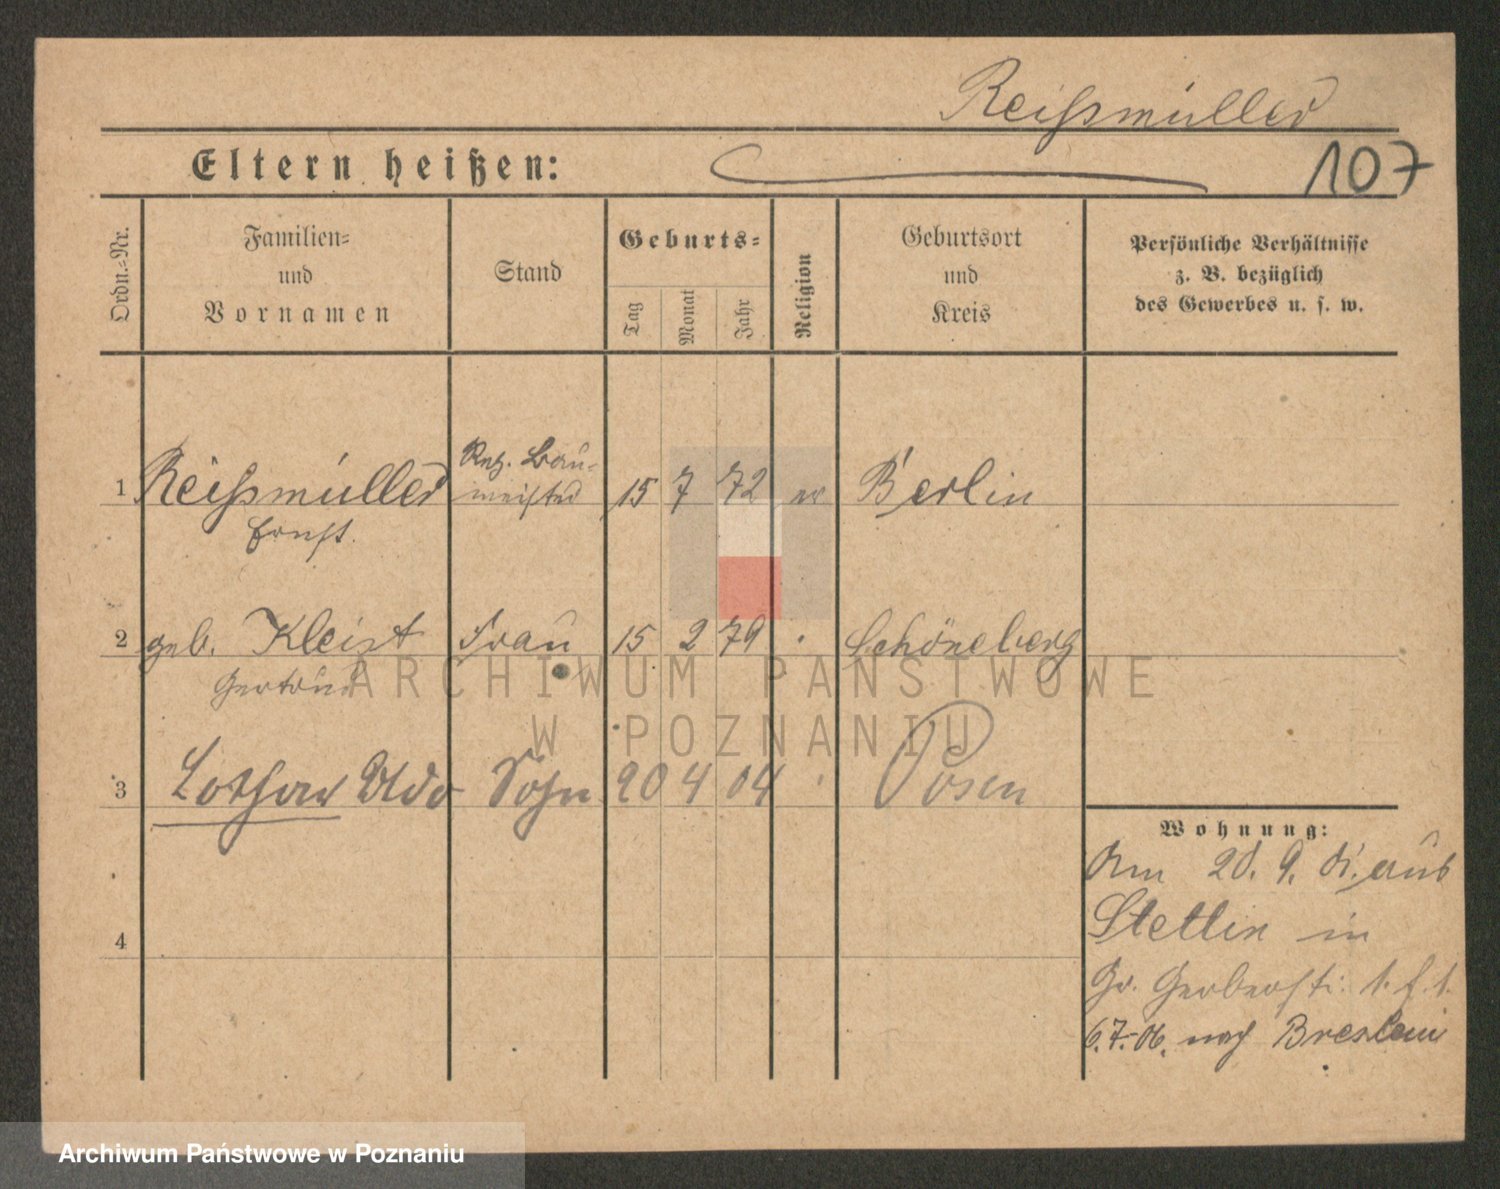 Reißmüller
Eltern heißen:
107
Ordn.-Nr.
Familien-
und
Vornamen
Stand
Geburts-
Tag
Monat
Jahr
Religion
Geburtsort
und
Kreis
Persönliche Verhältnisse
z. B. bezüglich
des Gewerbes u. s. w.
1 Reißmüller Reg. Bau-
meister 15 7 72 ev Berlin
Ernst.
2 geb. Kleist Frau 15 2 79 Schöneberg
Gertrud
ARCHIWUM PAŃSTWOWE
W POZNANIU
3 Lothar Udo Sohn 20 4 04 Posen
Wohnung:
Am 20. 9. aus
Stettin in
4
Gr. Gerberstr. 1.
6.7.06. nach Breslau
Archiwum Państwowe w Poznaniu